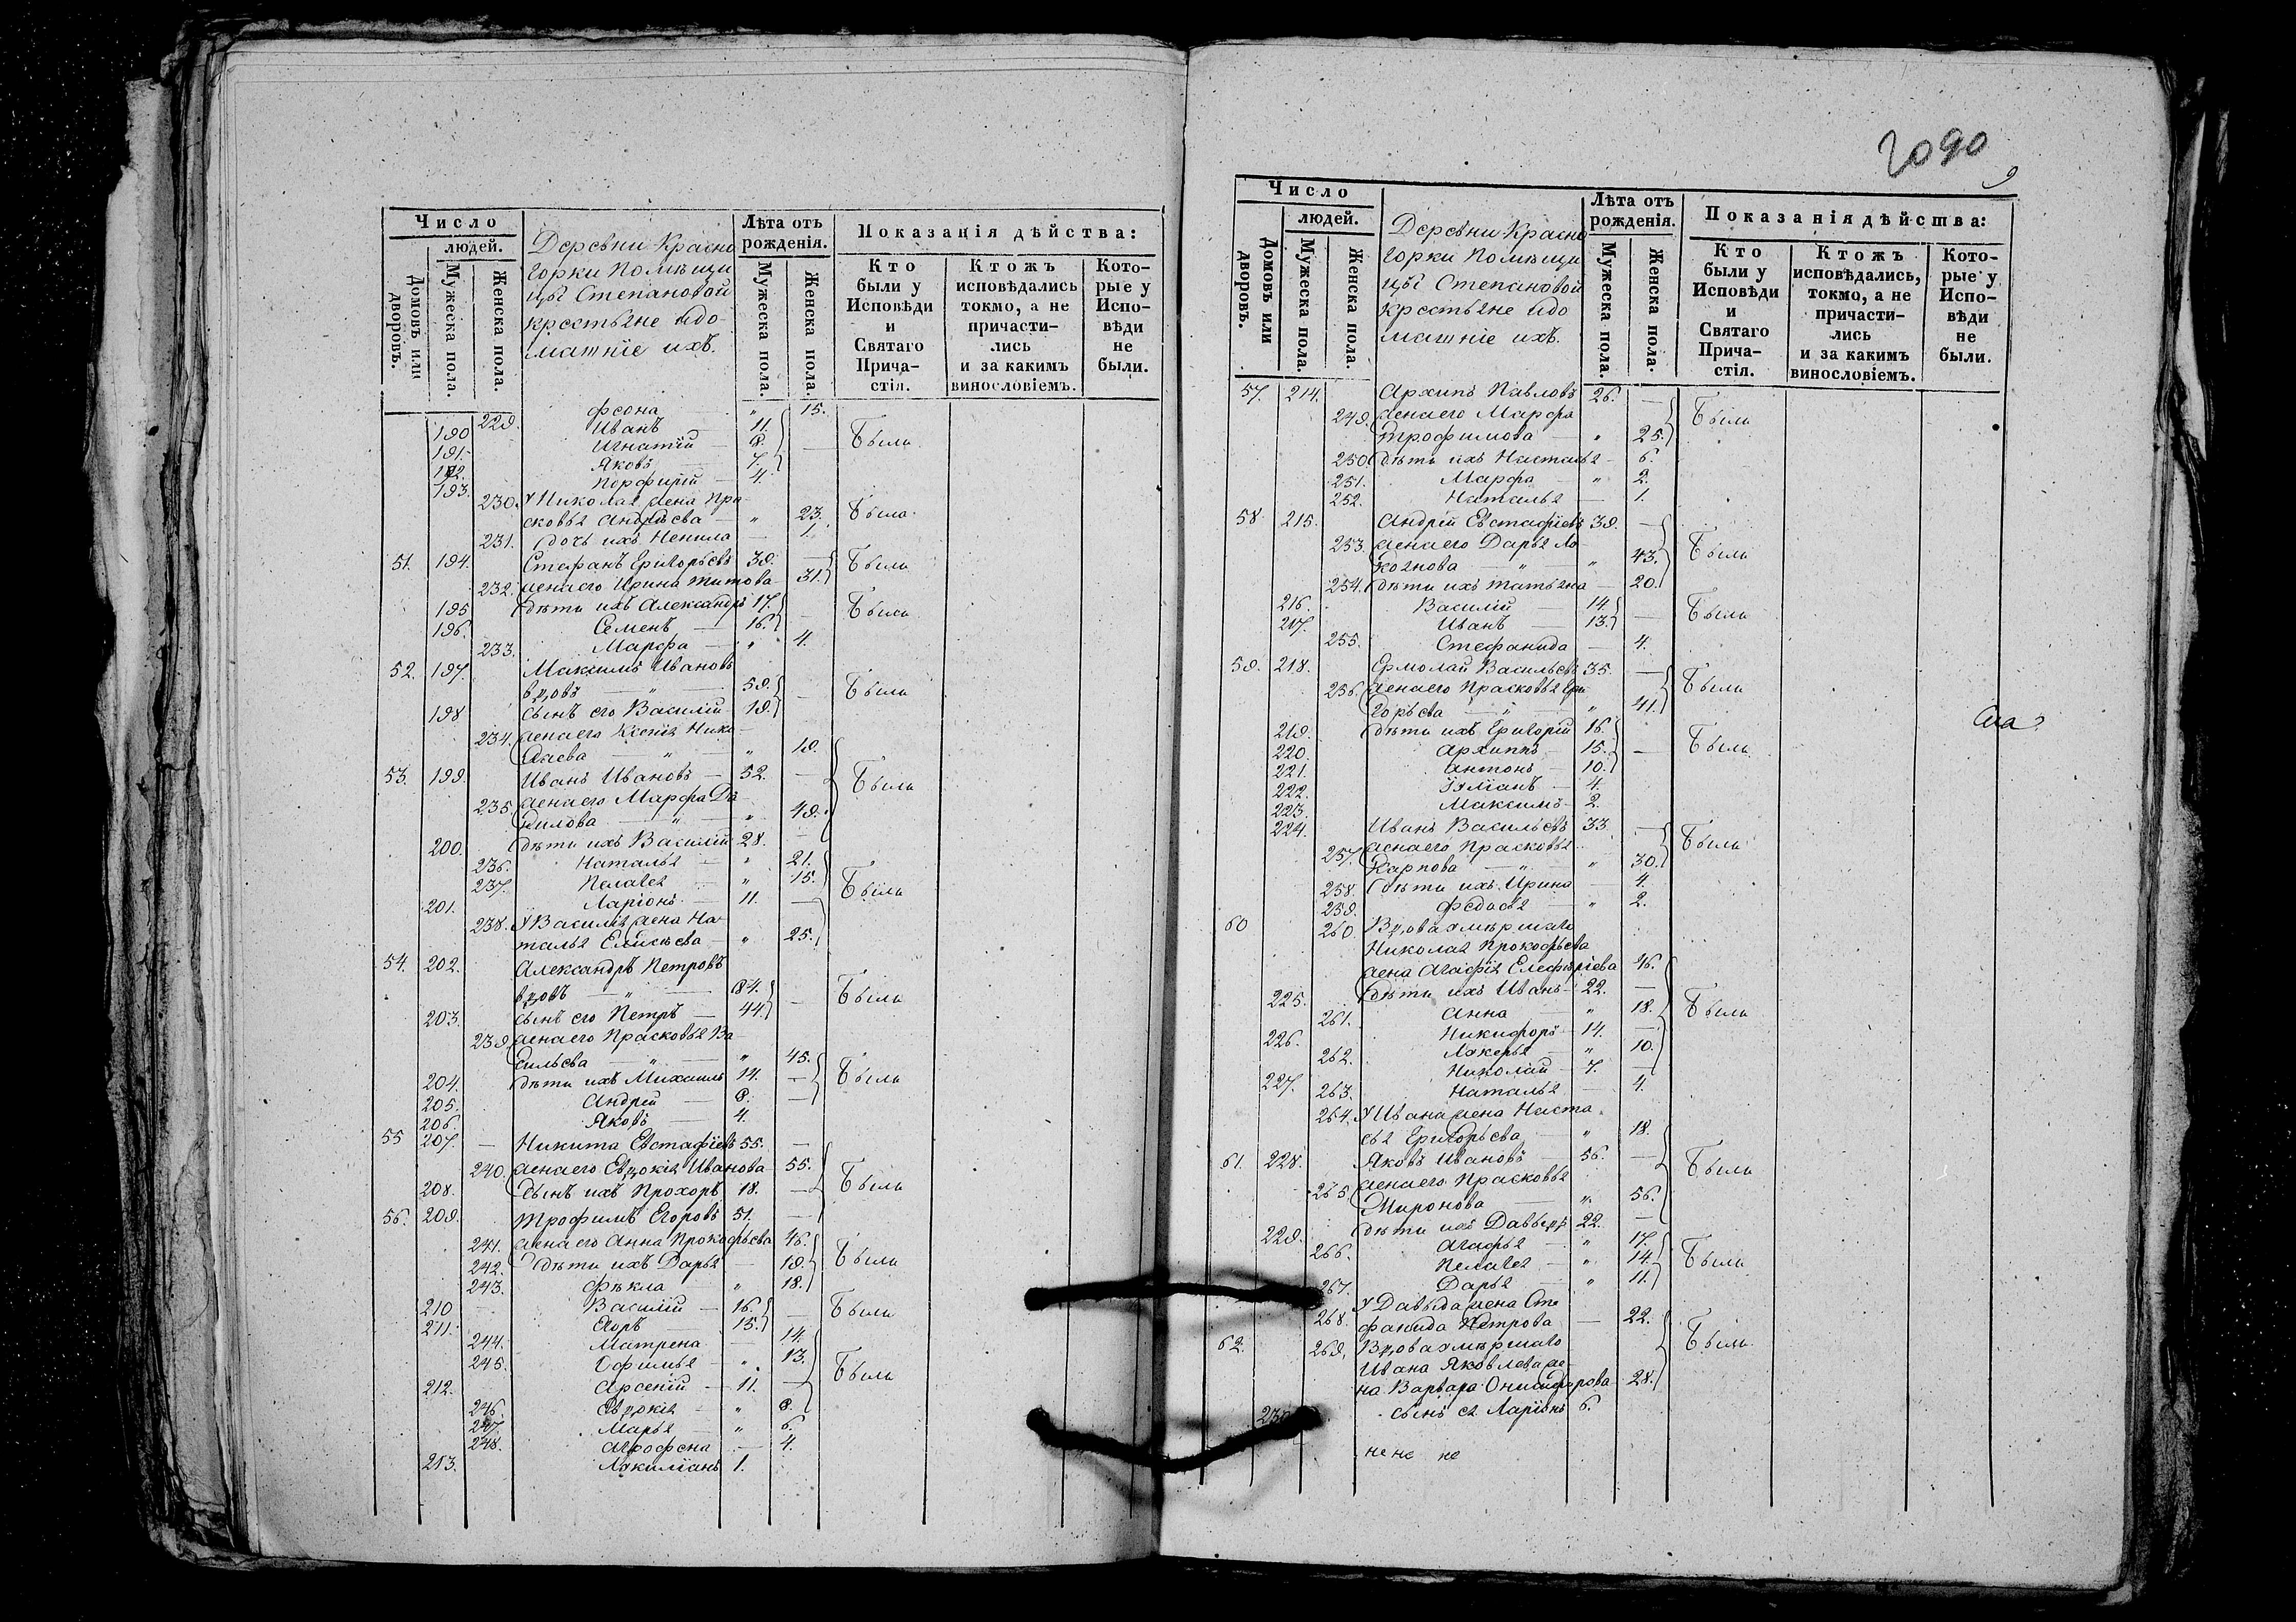 Число
людей.
Домовъ или дворовъ.
Мужеска пола.
Женска пола.
Деревни Красно
горки Помѣщи
цы Степановой
крестьяне и до
машніе ихъ.
Лѣта отъ рожденія.
Мужеска пола.
Женска пола.
Показанія дѣйства:
Кто были у Исповѣди и Святаго Прича-стія.
Ктожъ исповѣдались токмо, а не причасти-лись и за какимъ винословіемъ.
Кото-рые у Испо-вѣди не были.
229. Феона " 15.
190 Иванъ 11. Были
191. Игнатій 8.
192. Яковъ 7.
193. Порфирій 4.
230. У Николая жена Пра
сковья Андреева " 23. Была
231. дочь ихъ Ненила 1.
51. 194. Стефанъ Григорьевъ 39. Были
232. жена его Ирина Титова 31.
195 дѣти ихъ Александръ 17. Были
196. Семенъ 16.
233. Марфа " 4.
52. 197. Максимъ Ивановъ
вдовъ " 59. Были
198 сынъ его Василій 19.
234. жена его Ксенія Нико
лаева " " 19.
53. 199. Иванъ Ивановъ 52. Были
235. жена его Марфа Да
нилова " " 49.
200. дѣти ихъ Василій 28.
236. Наталья " 21.
237. Пелагея " 15. Были
201. Ларіонъ 11.
238. У Василья жена На
талья Елисѣева " 25.
54. 202. Александръ Петровъ
вдовъ " 84. Были
203. сынъ его Петръ 44.
239. жена его Прасковья Ва
сильева " " 45.
204. дѣти ихъ Михаилъ 14. Были
205. Андрей 8.
206. Яковъ 4.
55 207. Никита Евстафіевъ 55.
240. жена его Евдокія Иванова 55. Были
208. сынъ ихъ Прохоръ 18.
56. 209. Трофимъ Егоровъ 51.
241. жена его Анна Прокофьева 46.
242. дѣти ихъ Дарья 19. Были
243. Фекла " 18.
210 Василій 16. Были
211. Егоръ 15.
244. Матрена 14.
245. Ефимья " 13. Были
212. Арсеній 11.
246. Евдокія " 8.
247. Марья " 6.
248. Агрофена 4.
213. Лякиліанъ 1.
2090
9
Число
людей.
Домовъ или дворовъ.
Мужеска пола.
Женска пола.
Деревни Красно
горки Помѣщи
цы Степановой
крестьяне и до
машніе ихъ.
Лѣта отъ рожденія.
Мужеска пола.
Женска пола.
Показанія дѣйства:
Кто были у Исповѣди и Святаго Прича-стія.
Ктожъ исповѣдались, токмо, а не причасти-лись и за какимъ винословіемъ.
Кото-рые у Испо-вѣди не были.
57. 214. Архипъ Павловъ 26. Были
249. жена его Марфа
Трофимова " 25.
250. дѣти ихъ Настасья 6.
251. Марфа " 2.
252. Наталья 1.
58. 215. Андрей Евстафіевъ 39.
253. жена его Дарья Ло
когнова " " 43. Были
254. дѣти ихъ Татьяна 20.
216. Василій 14. Были
217. Иванъ 13.
255. Стефанида 4.
59. 218. Ермолай Васильевъ 35.
256. жена его Прасковья Гри
горьева " " 41. Были
219. дѣти ихъ Григорій 16.
220. Архиппъ 15. Были
221. Антонъ 10.
222. Іуліанъ 4.
223. Максимъ 2.
224. Иванъ Васильевъ 33.
257. жена его Прасковья Были
Карпова " " 30.
258. дѣти ихъ Ирина 4.
259. Федосья " 2.
60 260. Вдова умершаго
Николая Прокофьева
жена Агафія Елеферіева 46.
225. дѣти ихъ Иванъ 22.
261. Анна " 18. Были
226. Никифоръ 14.
262. Лукерья " 10.
227. Николай 7.
263. Наталья 4.
264. У Ивана жена Наста
сья Григорьева " 18.
61. 228. Яковъ Ивановъ 56. Были
265. жена его Прасковья
Миронова " 56.
229. дѣти ихъ Давыдъ 22.
266. Агафья " 17.
Пелагея " 14. Были
267. Дарья " 11.
268. У Давыда жена Сте
фанида Петрова 22.
62. 269. Вдова умершаго Были
Ивана Яковлева же
на Варвара Онисифорова 28.
230 сынъ ея Ларіонъ 6.
не не не